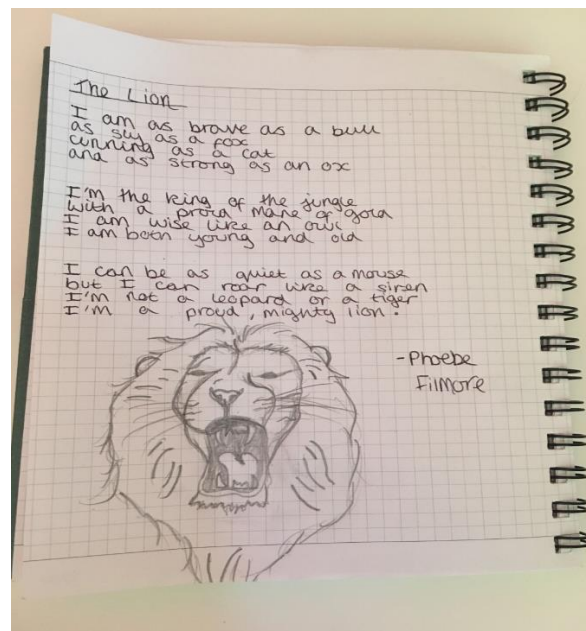 The Lion
I am as brave as a bull
as sly as a fox
cunning as a cat
and as strong as an ox
I'm the king of the jungle
with a proud mane of gold
I am wise like an owl
I am both young and old
I can be as quiet as a mouse
but I can roar like a siren
I'm not a leopard or a tiger
I'm a proud, mighty lion.
-Phoebe
Filmore